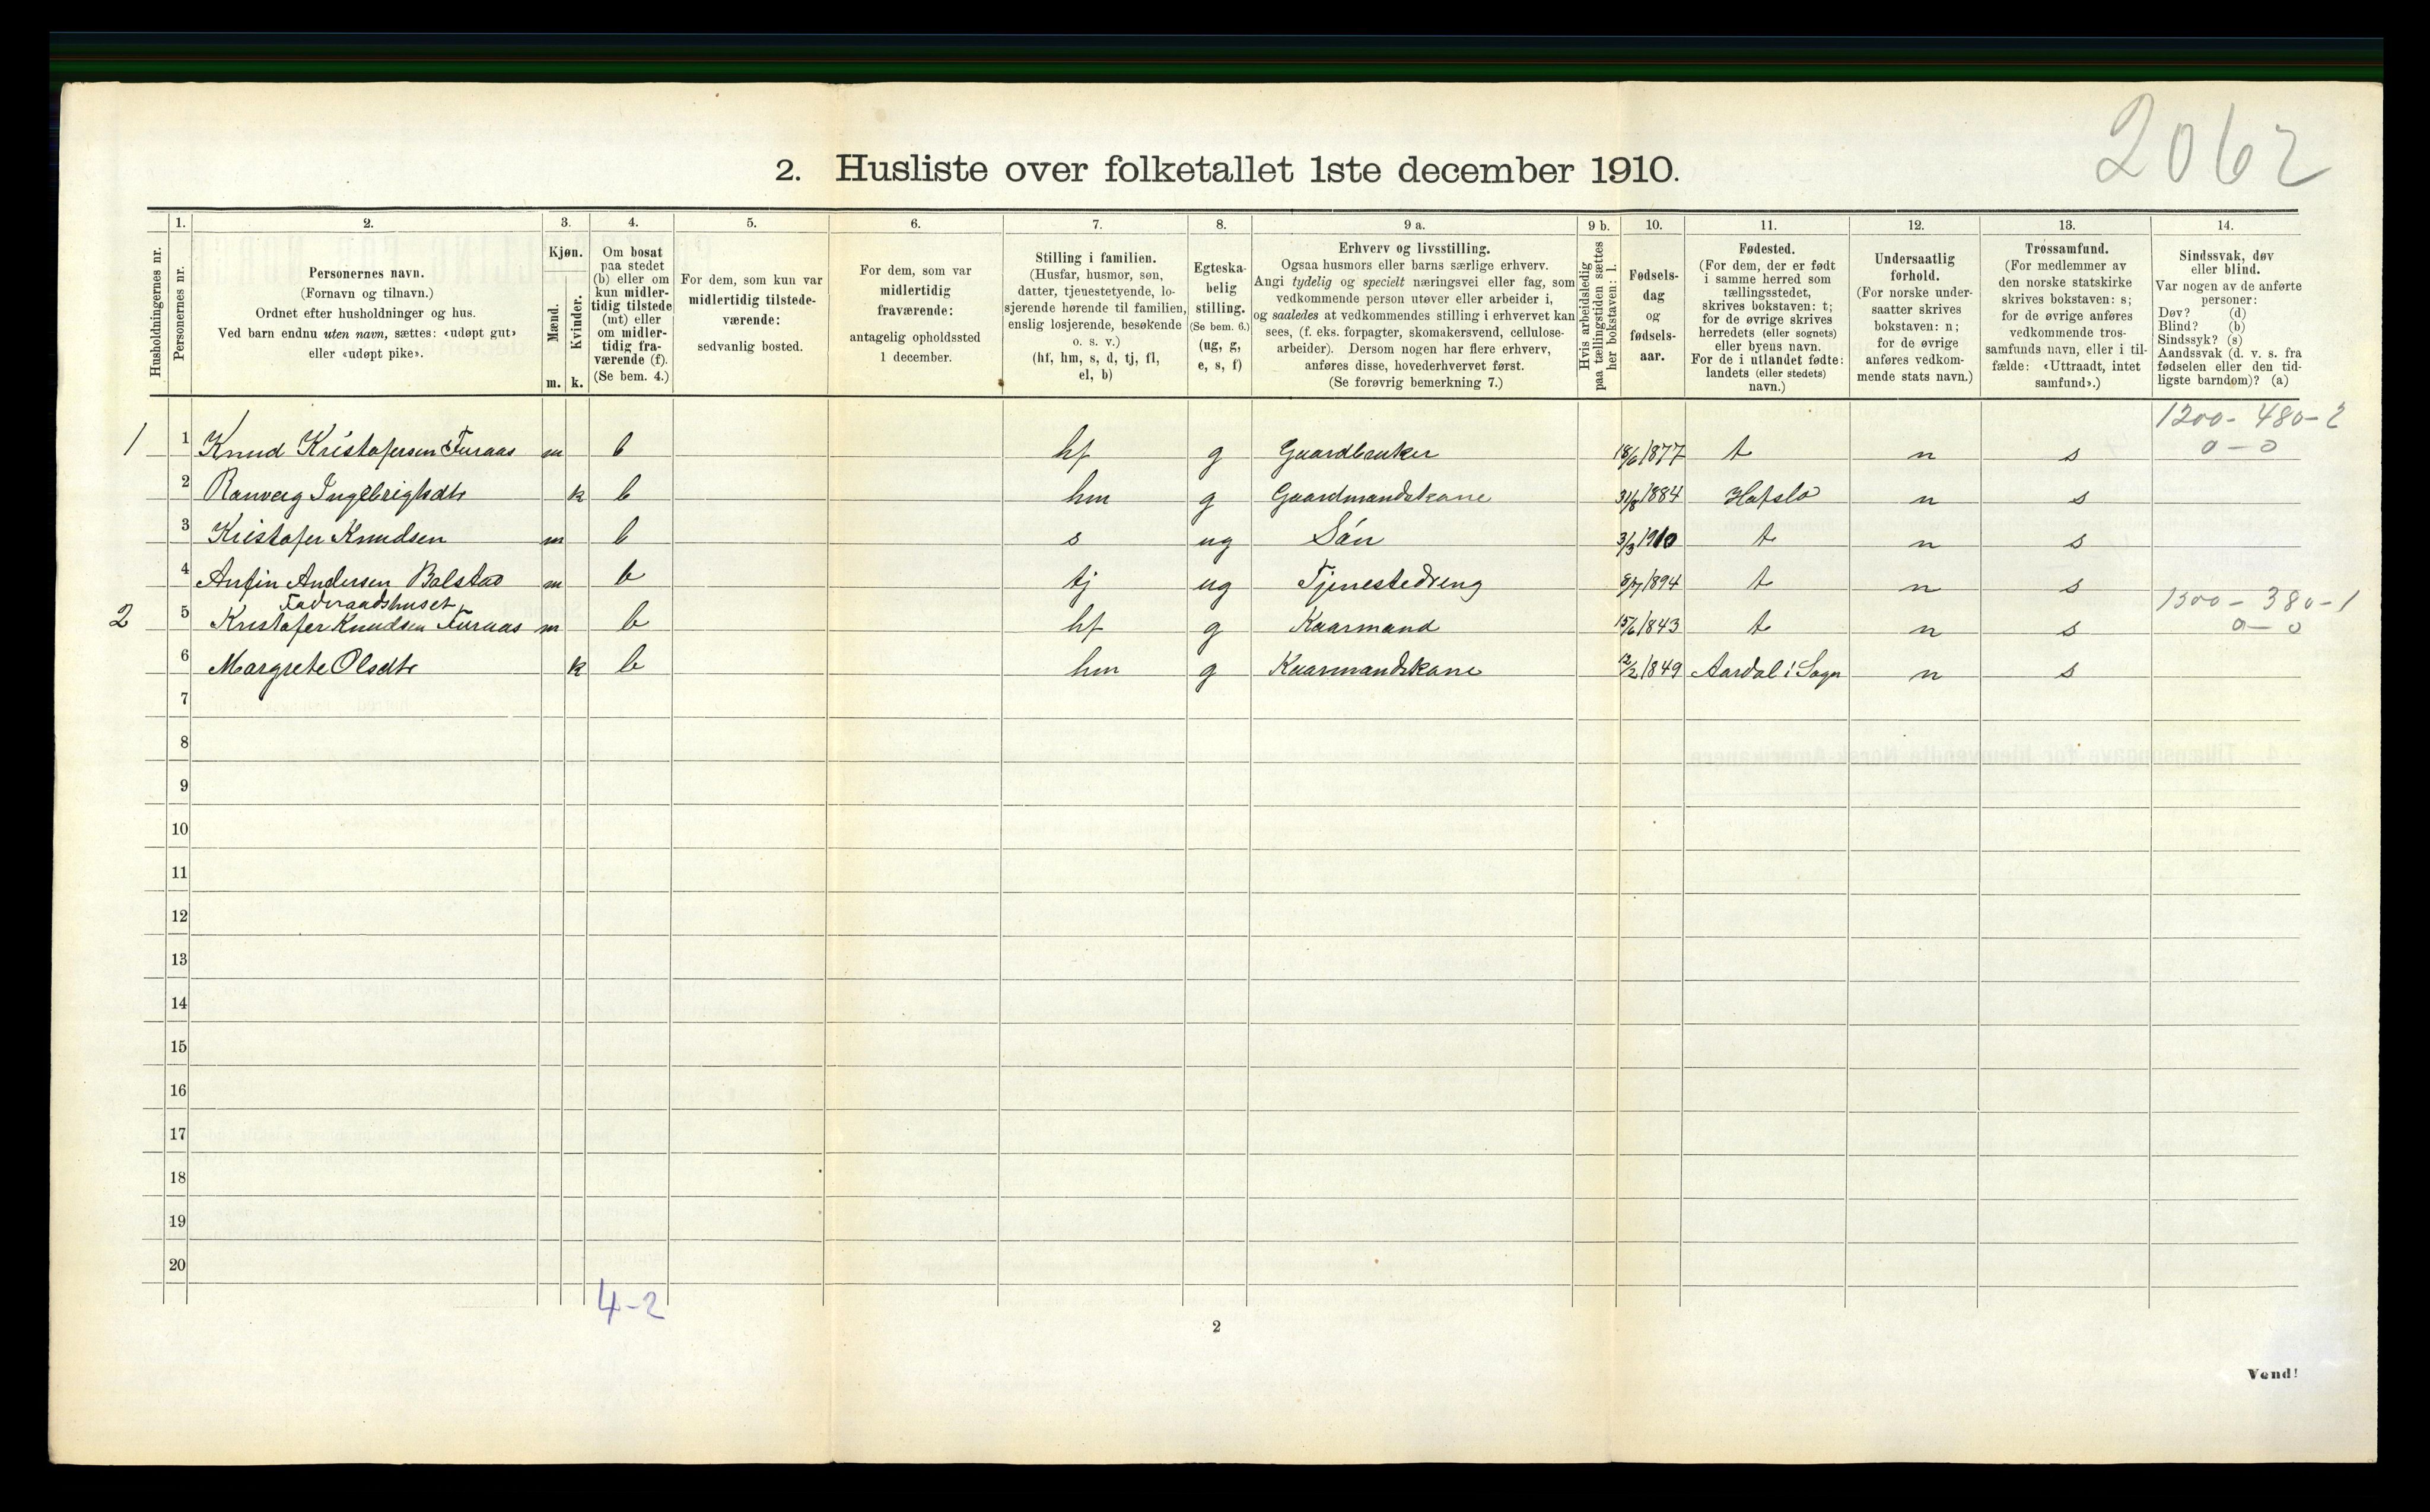 2062
2. Husliste over folketallet 1ste december 1910.
Husholdningernes nr.
1. Personernes nr.
2. Personernes navn.
(Fornavn og tilnavn.)
Ordnet efter husholdninger og hus.
Ved barn endnu uten navn, sættes: «udøpt gut»
eller «udøpt pike».
3. Kjøn.
Mænd. m.
Kvinder. k.
4. Om bosat
paa stedet
(b) eller om
kun midler-
tidig tilstede
(mt) eller
om midler-
tidig fra-
værende (f).
(Se bem. 4.)
5. For dem, som kun var
midlertidig tilstede-
værende:
sedvanlig bosted.
6. For dem, som var
midlertidig
fraværende:
antagelig opholdssted
1 december.
7. Stilling i familien.
(Husfar, husmor, søn,
datter, tjenestetyende, lo-
sjerende hørende til familien,
enslig losjerende, besøkende
o. s. v.)
(hf, hm, s, d, tj, fl,
el, b)
8. Egteska-
belig
stilling.
(Se bem. 6.)
(ug, g,
e, s, f)
9 a. Erhverv og livsstilling.
Ogsaa husmors eller barns særlige erhverv.
Angi tydelig og specielt næringsvei eller fag, som
vedkommende person utøver eller arbeider i,
og saaledes at vedkommendes stilling i erhvervet kan
sees, (f. eks. forpagter, skomakersvend, cellulose-
arbeider). Dersom nogen har flere erhverv,
anføres disse, hovederhvervet først.
(Se forøvrig bemerkning 7.)
9 b. Hvis arbeidsledig
paa tællingstiden sættes
her bokstaven: l.
10. Fødsels-
dag
og
fødsels-
aar.
11. Fødested.
(For dem, der er født
i samme herred som
tællingsstedet,
skrives bokstaven: t;
for de øvrige skrives
herredets (eller sognets)
eller byens navn.
For de i utlandet fødte:
landets (eller stedets)
navn.)
12. Undersaatlig
forhold.
(For norske under-
saatter skrives
bokstaven: n;
for de øvrige
anføres vedkom-
mende stats navn.)
13. Trossamfund.
(For medlemmer av
den norske statskirke
skrives bokstaven: s;
for de øvrige anføres
vedkommende tros-
samfunds navn, eller i til-
fælde: «Uttraadt, intet
samfund».)
14. Sindssvak, døv
eller blind.
Var nogen av de anførte
personer:
Døv? (d)
Blind? (b)
Sindssyk? (s)
Aandssvak (d. v. s. fra
fødselen eller den tid-
ligste barndom)? (a)
1200 - 480 - 2
1 1 Knud Kristofersen Furaas m b hf g Gaardbruker 18/6 1877 t n s 0 - 0
2 Ranveig Ingebrigtsdtr k b hm g Gaardmandskone 31/8 1884 Hafslo n s
3 Kristofer Knudsen m b s ug Sön 3/3 1910 t n s
4 Anfin Andersen Bolstad m b tj ug Tjenestedreng 8/7 1894 t n s
Foderaadshuset 1300 - 380 - 1
2 5 Kristofer Knudsen Furaas m b hf g Kaarmand 15/6 1843 t n s 0 - 0
6 Margrete Olsdtr k b hm g Kaarmandskone 12/2 1849 Aardal i Sogn n s
7
8
9
10
11
12
13
14
15
16
17
18
19
20
4-2
2
Vend!